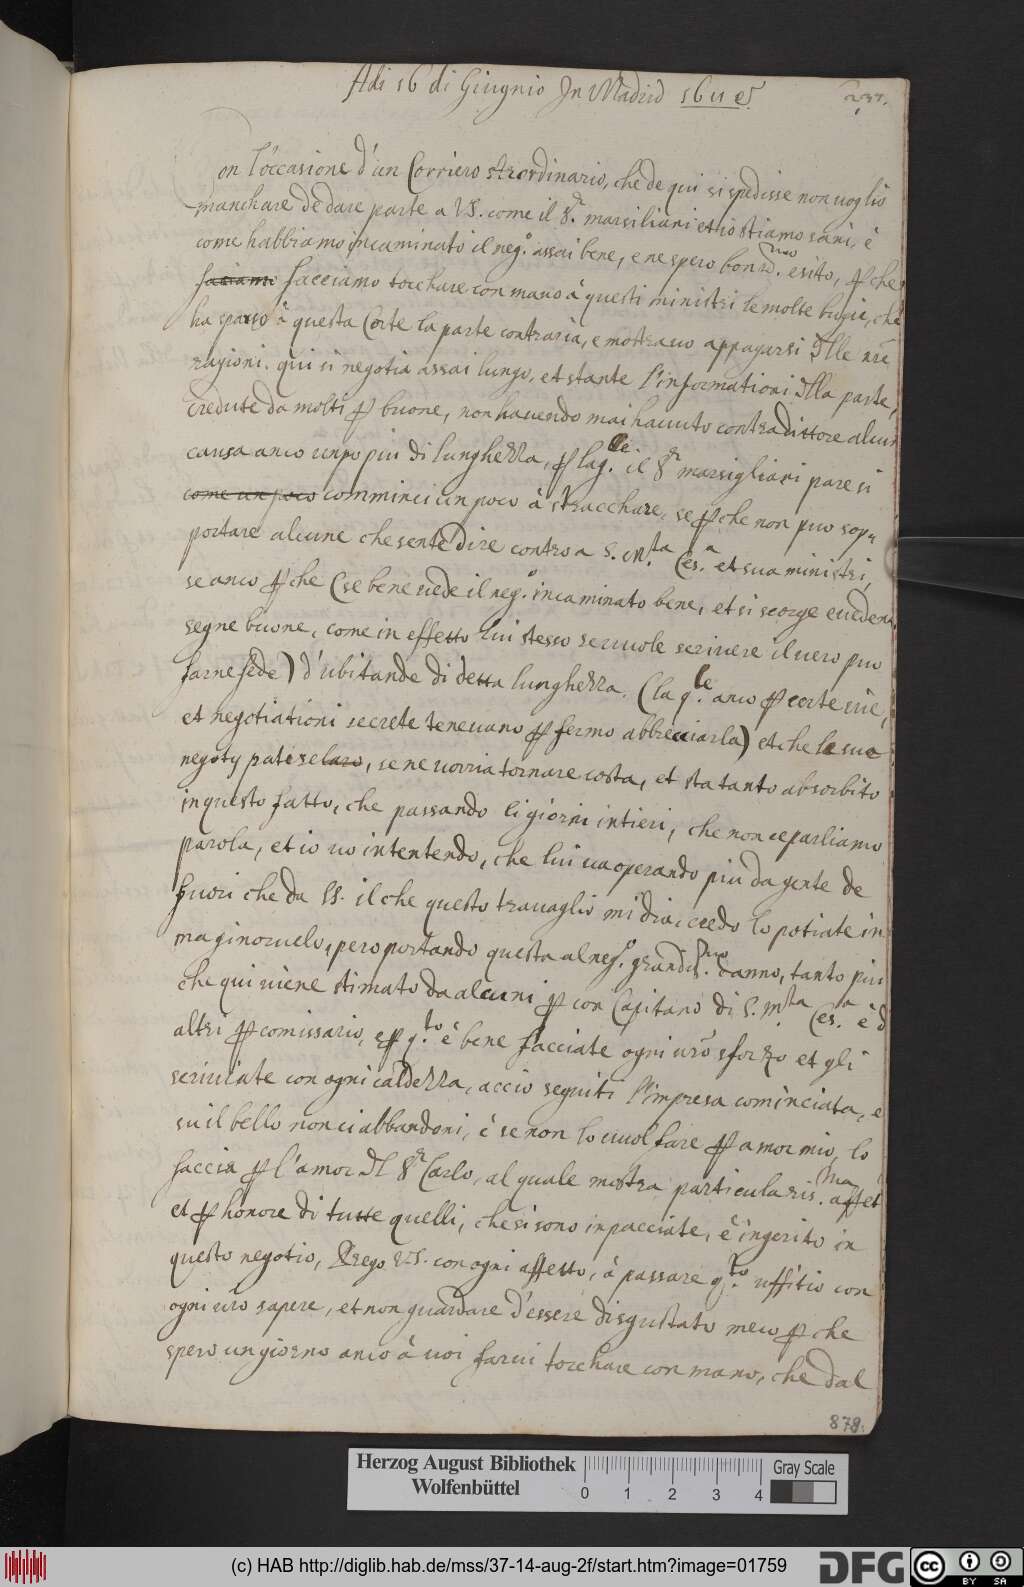 Adi 16 di Giugnio In Madrid 1611 &
237.
on l'occasione d'un Corriero strordinario, che de qui si spedisse non uoglio
manchare de dare parte a VS. come il Sr. marsiliani et io stiamo sani, è
come habbiamo incaminato il neg.o assai bene, e ne spero boniss.mo esito, p che
faciamo facciamo tocchare con mano à questi ministri le molte bugie, che
ha sparso à questa Corte la parte contraria, e mostrano appagarsi dlle nre
ragioni. qui si negotia assai lungo, et stante l'informationi dlla parte,
credute da molti p buone, non hauendo mai hauuto contradittore alcun
causa anco un po piu di lunghezza, p la q.le il Sr marsigliani pare si
come un poco comminci un poco à stracchare, se p che non puo sop-
portare alcune che sente dire contro a S. M.ta Ces.a et sua ministri,
se anco p che (se bene uede il neg.o incaminato bene, et si scorge euedent
segne buone, come in effetto lui stesso se uuole scriuere il uero puo
farne fede) d'ubitande di detta lunghezza. (la q.le anco p certe uie,
et negotiationi secrete teneuano p fermo abbreuiarla) et che le sue
negoty patiselaro, se ne uorria tornare costa, et sta tanto absorbito
in questo fatto, che passando li giorni intieri, che non ce parliamo
parola, et io uo intentendo, che lui ua operando piu da gente de
fuori che da SS. il che questo trauaglio mi dia, credo lo potiate in
maginoruelo, pero portando questa al neg.o grandiss.mo danno, tanto piu
che qui uiene stimato da alcuni p con Capitano di S. M.ta Ces.a è d
altri p comissario, e p q.to è bene facciate ogni uro sforzo et gli
scriuiate con ogni caldezza, accio seguiti l'impresa cominciata, e
su il bello non ci abbandoni, è se non lo uuol fare p amor mio, lo
faccia p l'amor dl Sr Carlo, al quale mostra particularis.ma affet
et p honore di tutte quelli, che si sono inpacciate, è ingerito in
questo negotio, Prego VS. con ogni affetto, à passare q.to uffitio con
ogni uro sapere, et non guardare d'essere disgustato meco p che
spero un giorno anco à uoi farui tocchare con mano, che dal
878.
Herzog August Bibliothek
Wolfenbüttel
0 1 2 3 4
Gray Scale
(c) HAB http://diglib.hab.de/mss/37-14-aug-2f/start.htm?image=01759
DFG
cc BY SA